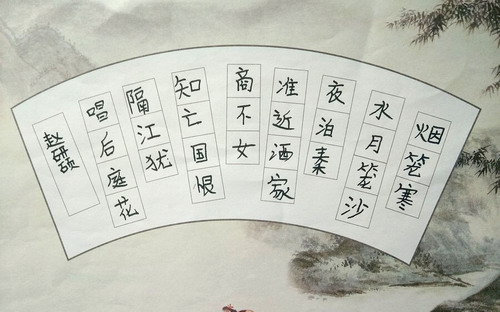 烟笼寒
水月笼沙
夜泊秦
准近洒家
商不女
知亡国恨
隔江犹
唱后庭花
赵